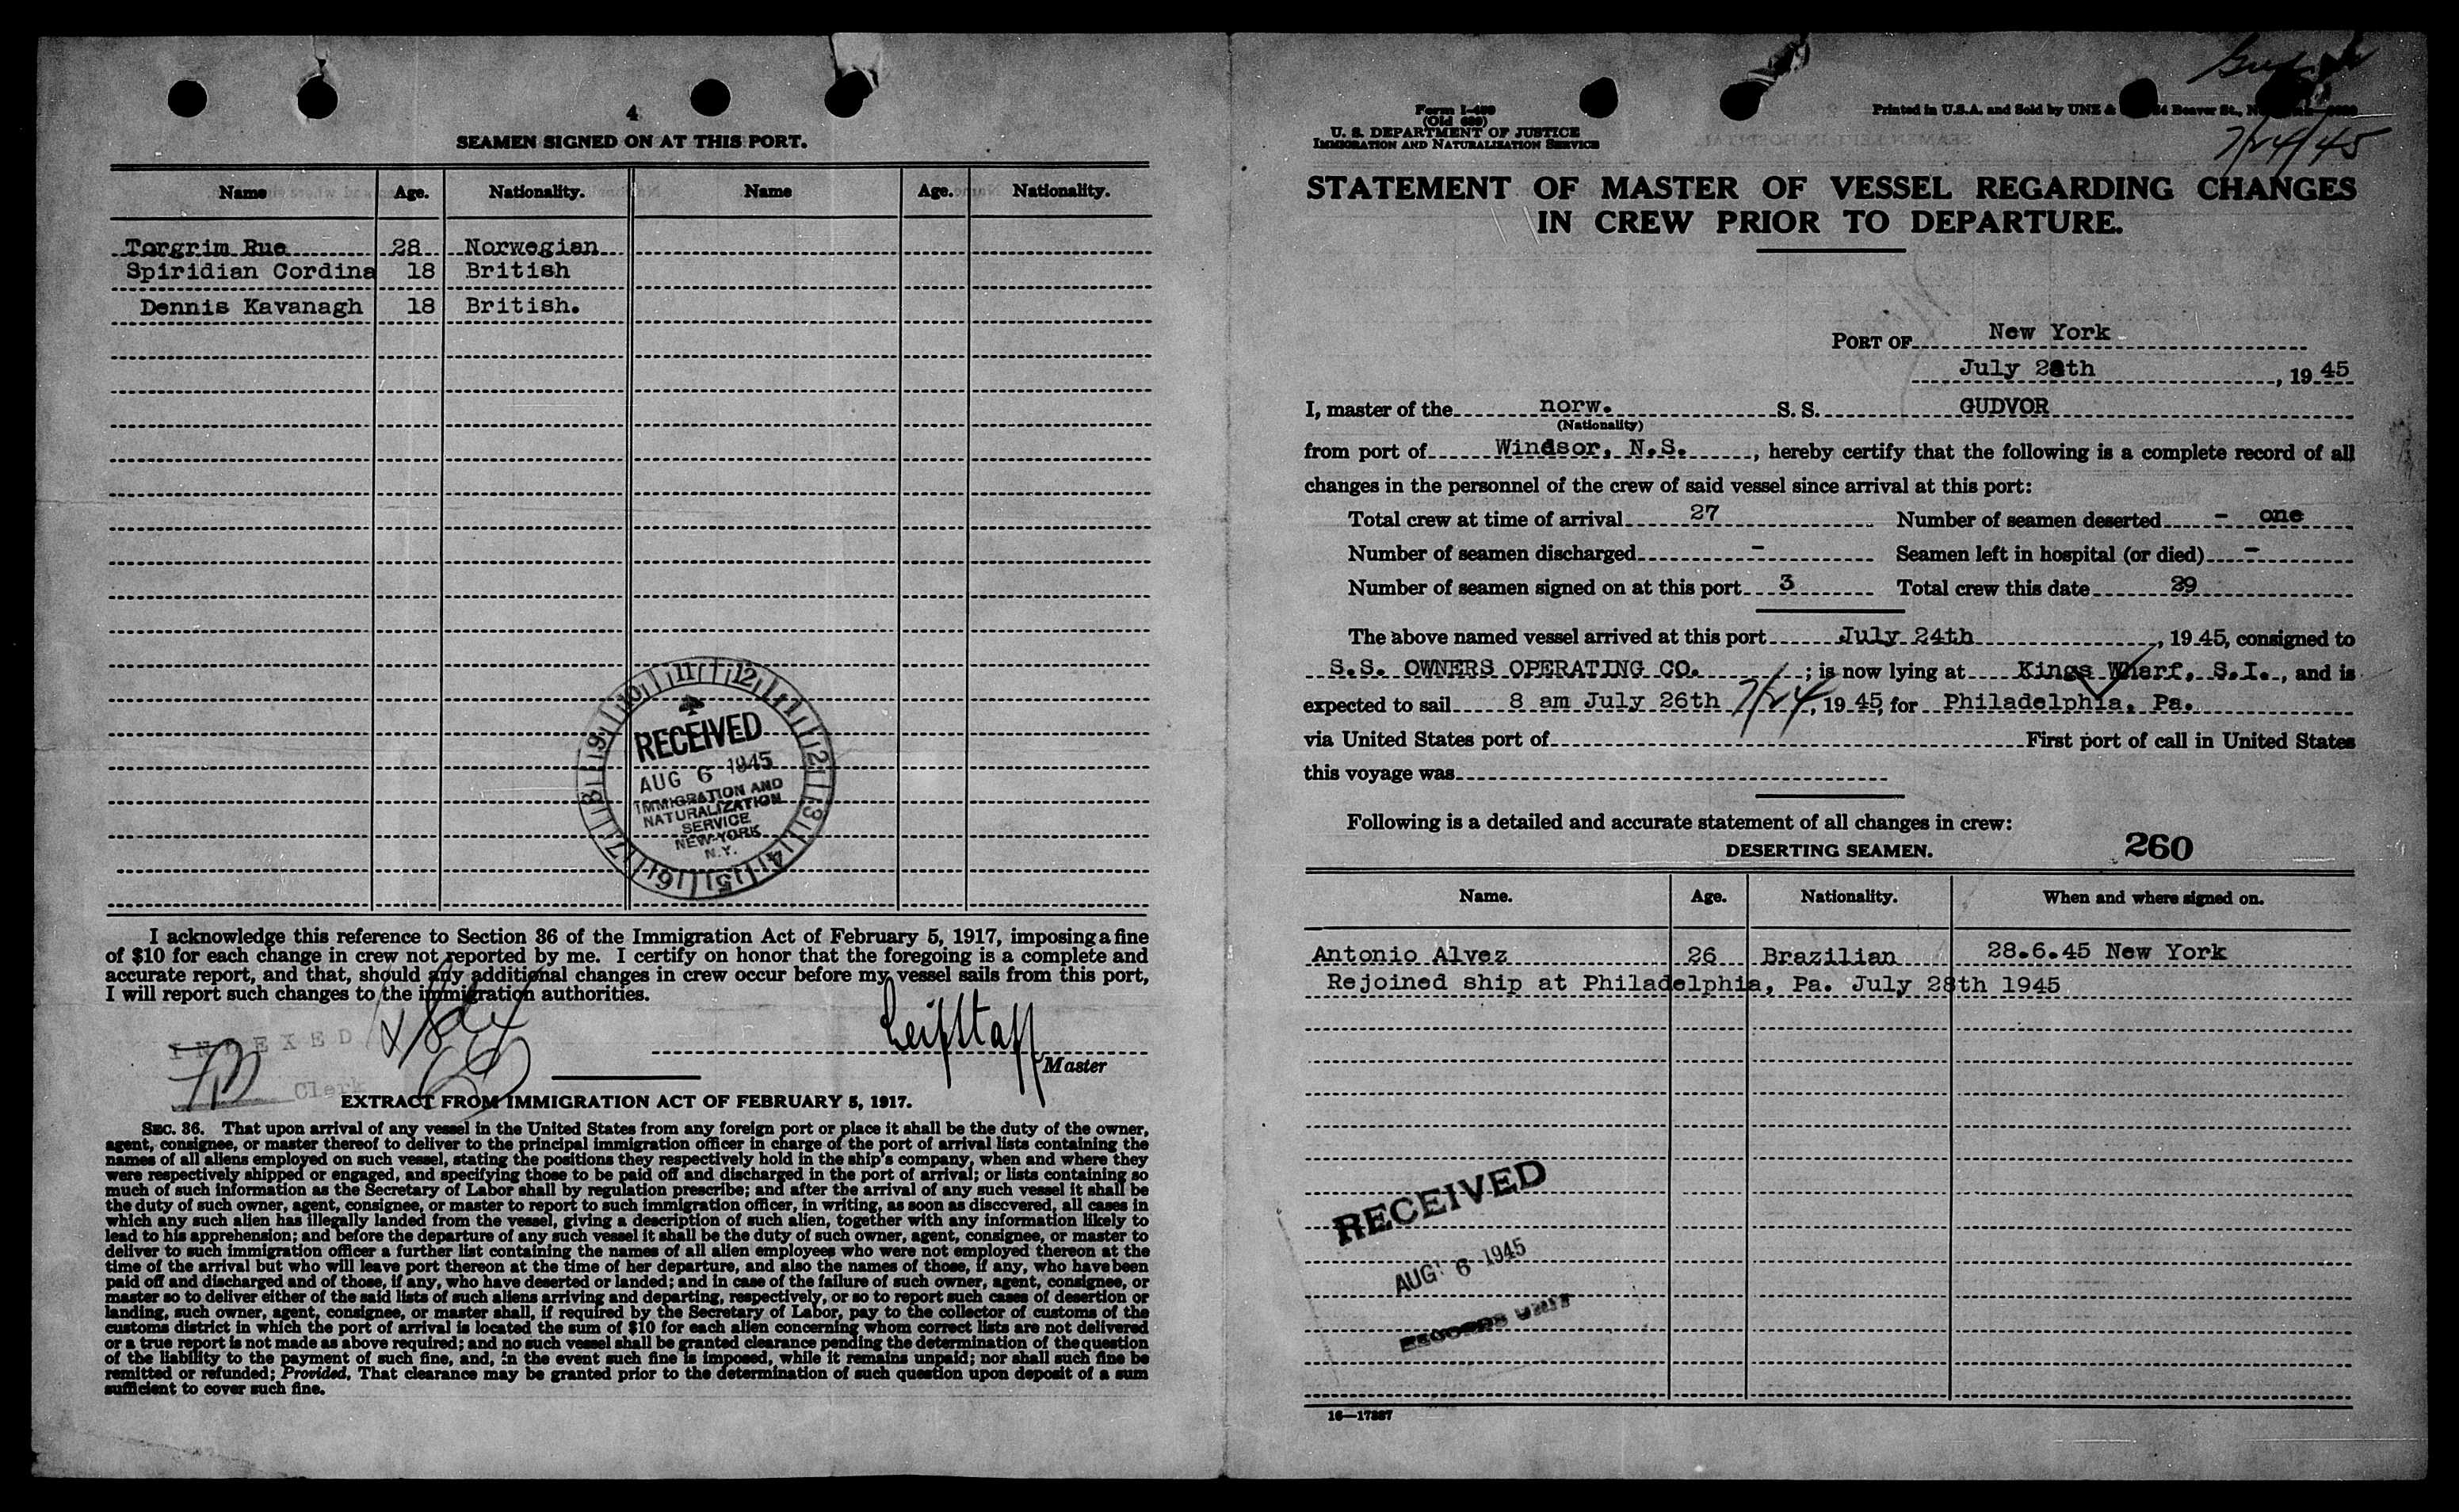 4
SEAMEN SIGNED ON AT THIS PORT.
Name Age. Nationality. Name Age. Nationality.
Torgrim Rue 28 Norwegian
Spiridian Cordina 18 British
Dennis Kavanagh 18 British.
RECEIVED
AUG 6 1945
IMMIGRATION AND
NATURALIZATION
SERVICE
NEW YORK
N.Y.
I acknowledge this reference to Section 36 of the Immigration Act of February 5, 1917, imposing a fine
of $10 for each change in crew not reported by me. I certify on honor that the foregoing is a complete and
accurate report, and that, should any additional changes in crew occur before my vessel sails from this port,
I will report such changes to the immigration authorities.
INDEXED
Leif Staff
Master
Clerk
EXTRACT FROM IMMIGRATION ACT OF FEBRUARY 5, 1917.
SEC. 36. That upon arrival of any vessel in the United States from any foreign port or place it shall be the duty of the owner,
agent, consignee, or master thereof to deliver to the principal immigration officer in charge of the port of arrival lists containing the
names of all aliens employed on such vessel, stating the positions they respectively hold in the ship's company, when and where they
were respectively shipped or engaged, and specifying those to be paid off and discharged in the port of arrival; or lists containing so
much of such information as the Secretary of Labor shall by regulation prescribe; and after the arrival of any such vessel it shall be
the duty of such owner, agent, consignee, or master to report to such immigration officer, in writing, as soon as discovered, all cases in
which any such alien has illegally landed from the vessel, giving a description of such alien, together with any information likely to
lead to his apprehension; and before the departure of any such vessel it shall be the duty of such owner, agent, consignee, or master to
deliver to such immigration officer a further list containing the names of all alien employees who were not employed thereon at the
time of the arrival but who will leave port thereon at the time of her departure, and also the names of those, if any, who have been
paid off and discharged and of those, if any, who have deserted or landed; and in case of the failure of such owner, agent, consignee, or
master so to deliver either of the said lists of such aliens arriving and departing, respectively, or so to report such cases of desertion or
landing, such owner, agent, consignee, or master shall, if required by the Secretary of Labor, pay to the collector of customs of the
customs district in which the port of arrival is located the sum of $10 for each alien concerning whom correct lists are not delivered
or a true report is not made as above required; and no such vessel shall be granted clearance pending the determination of the question
of the liability to the payment of such fine, and, in the event such fine is imposed, while it remains unpaid; nor shall such fine be
remitted or refunded; Provided, That clearance may be granted prior to the determination of such question upon deposit of a sum
sufficient to cover such fine.
Form I-489
(Old 689)
U. S. DEPARTMENT OF JUSTICE
IMMIGRATION AND NATURALIZATION SERVICE
Printed in U.S.A. and Sold by UNZ & Beaver St.,
7/24/45
STATEMENT OF MASTER OF VESSEL REGARDING CHANGES
IN CREW PRIOR TO DEPARTURE.
PORT OF New York
July 28th, 1945
I, master of the norw. S. S. GUDVOR
(Nationality)
from port of Windsor, N.S. , hereby certify that the following is a complete record of all
changes in the personnel of the crew of said vessel since arrival at this port:
Total crew at time of arrival 27 Number of seamen deserted - one
Number of seamen discharged - Seamen left in hospital (or died) -
Number of seamen signed on at this port 3 Total crew this date 29
The above named vessel arrived at this port July 24th , 1945, consigned to
S.S. OWNERS OPERATING CO. ; is now lying at Kings Wharf, S.I. , and is
expected to sail 8 am July 26th 7/24, 1945, for Philadelphia, Pa.
via United States port of First port of call in United States
this voyage was
Following is a detailed and accurate statement of all changes in crew:
DESERTING SEAMEN. 260
Name. Age. Nationality. When and where signed on.
Antonio Alvez 26 Brazilian 28.6.45 New York
Rejoined ship at Philadelphia, Pa. July 28th 1945
RECEIVED
AUG 6 1945
RECORDS UNIT
16—17387